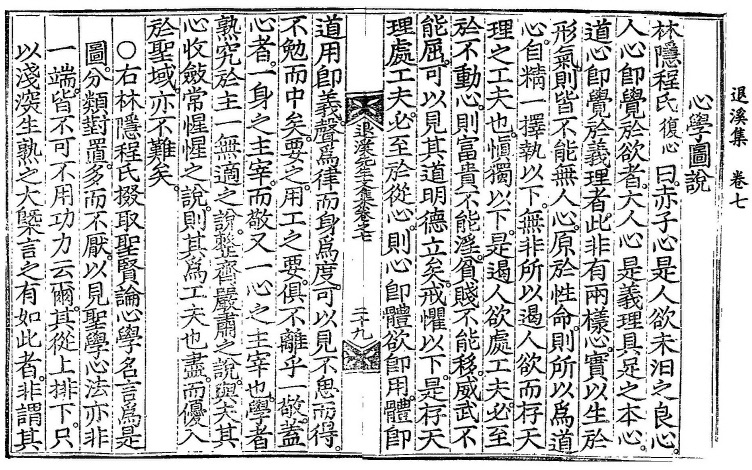 退溪集 卷七
心學圖說
林隱程氏 復心 曰。赤子心是人欲未汨之良心。
人心卽覺於欲者。大人心是義理具足之本心。
道心卽覺於義理者。此非有兩樣心。實以生於
形氣則皆不能無人心。原於性命則所以爲道
心。自精一擇執以下。無非所以遏人欲而存天
理之工夫也。愼獨以下。是遏人欲處工夫。必至
於不動心。則富貴不能淫。貧賤不能移。威武不
能屈。可以見其道明德立矣。戒懼以下。是存天
理處工夫。必至於從心。則心卽體欲卽用。體卽
退溪先生文集卷之七
二十九
道用卽義。聲爲律而身爲度。可以見不思而得。
不勉而中矣。要之。用工之要。俱不離乎一敬。蓋
心者。一身之主宰。而敬又一心之主宰也。學者
熟究於主一無適之說。整齊嚴肅之說。與夫其
心收斂常惺惺之說。則其爲工夫也盡。而優入
於聖域。亦不難矣。
○右林隱程氏掇取聖賢論心學名言爲是
圖。分類對置。多而不厭。以見聖學心法亦非
一端。皆不可不用功力云爾。其從上排下。只
以淺深生熟之大槩言之有如此者。非謂其